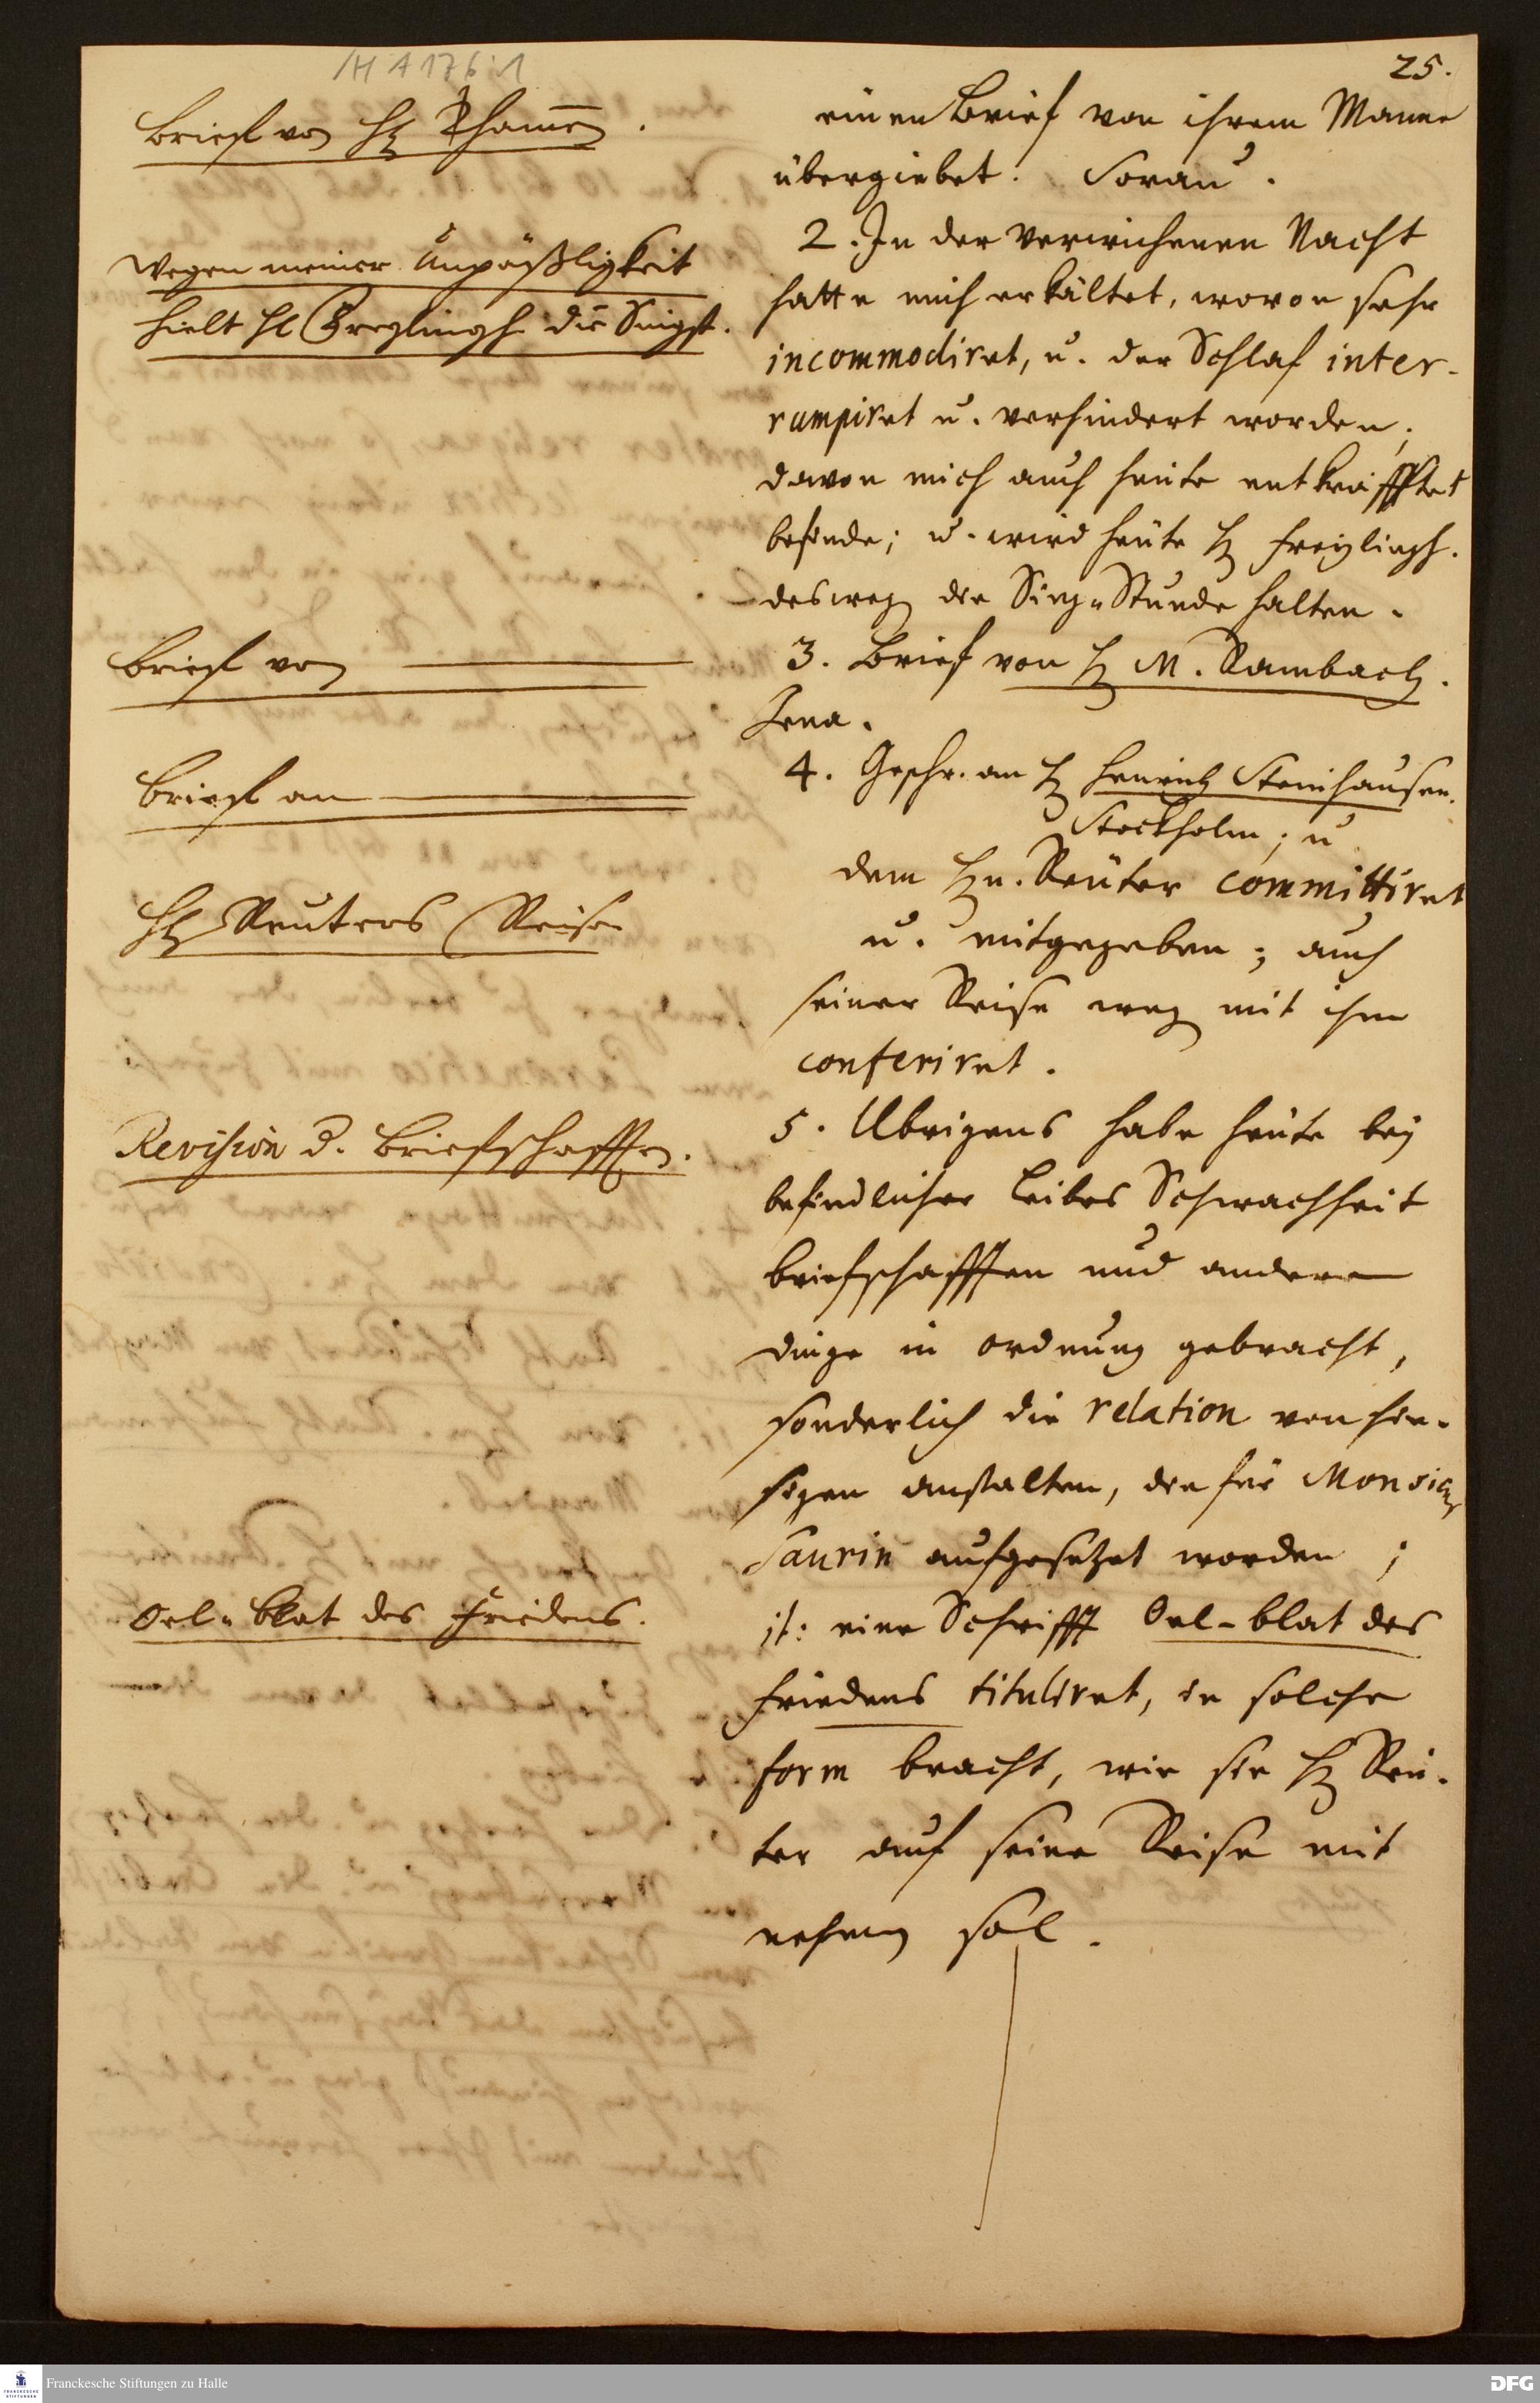 /H A 176:1
25.
Brieff von H. Thamen.
einen Brief von ihrem Manne
übergiebet. Sorau.
2. In der verwichenen Nacht
Wegen meiner Unpäßligkeit
hielt H Freylingh die Singst.
hatte mich erkältet, wovon sehr
incommodiret, u. der Schlaf inter-
rumpiret u. verhindert worden;
davon mich auch heute entkräfftet
befinde; u. wird heute H Freylingh.
desweg die Sing-Stunde halten.
Brieff von
3. Brief von H M. Rambach.
Jena.
4. Geschr. an H Henrich Steinhausen.
Brieff an
Stockholm; u
dem Hn. Reuter committiret
H Reuters Reise
u. mitgegeben; auch
seiner Reise weg mit ihm
conferiret.
Revision d. Briefschafften.
5. Ubrigens habe heute bey
befindlicher Leibes Schwachheit
briefschafften und andere
dinge in ordnung gebracht,
sonderlich die relation von hie-
sigen anstalten, die für Monsieur
Saurin aufgesetzet worden;
Oel-blat des Friedens.
it: eine Schrifft Oel-blat des
Friedens tituliret, in solche
form bracht, wie sie H Reu-
ter auf seine Reise mit
nehmen sol.
Franckesche Stiftungen zu Halle
DFG